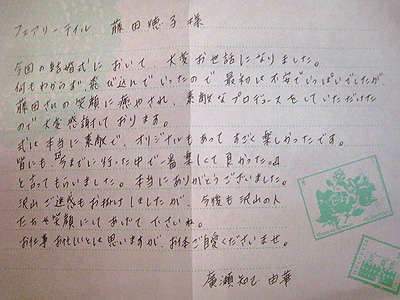 フェアリーテイル 藤田 様
今回の結婚式において、大変お世話になりました。
何もわからず飛び込んでいったので最初は不安でいっぱいでしたが、
藤田さんの笑顔に癒やされ、素敵なプロデュースをしていただけた
ので大変感謝しております。
式は本当に素敵で、オリジナルもあってすごく楽しかったです。
皆にも、『今までに行った中で一番楽しくて良かった。』
と言ってもらいました。本当にありがとうございました。
沢山ご迷惑もお掛けしましたが、今後も沢山の人
たちを笑顔にしてあげて下さいね。
お仕事お忙しいとは思いますが、お体ご自愛くださいませ。
廣瀬知 由華